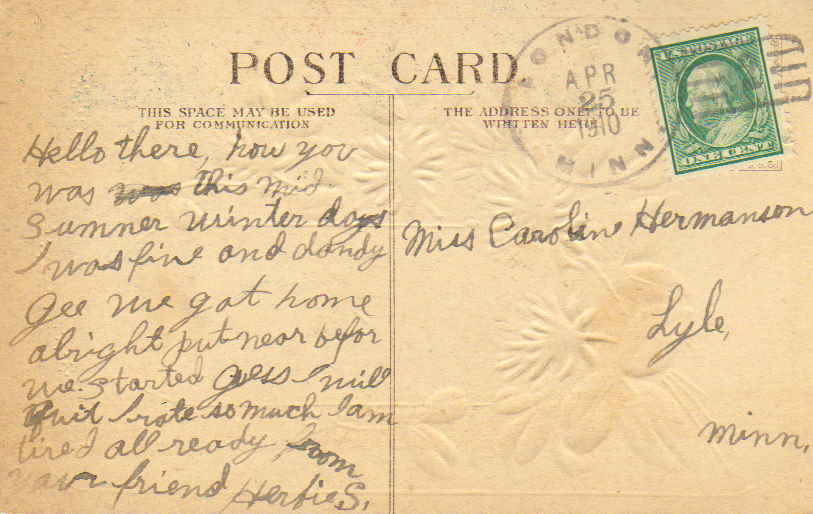 POST CARD
THIS SPACE MAY BE USED
FOR COMMUNICATION
THE ADDRESS ONLY TO BE
WRITTEN HERE
APR
25
1910
MINN.
U.S. POSTAGE
ONE CENT
Hello there, how you
was was this mid
summer winter days
I was fine and dandy
gee we got home
alright put near befor
we started guess I will
quit I rote so much I am
tired all ready from
your friend Herbie S.
Miss Caroline Hermanson
Lyle,
Minn,